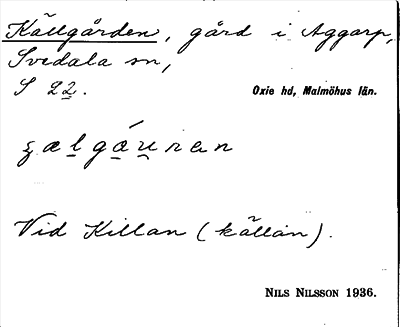 Källgården, gård i Aggarp,
Svedala sn,
S 22.
Oxie hd, Malmöhus län.
Vid Killan (källan).
NILS NILSSON 1936.